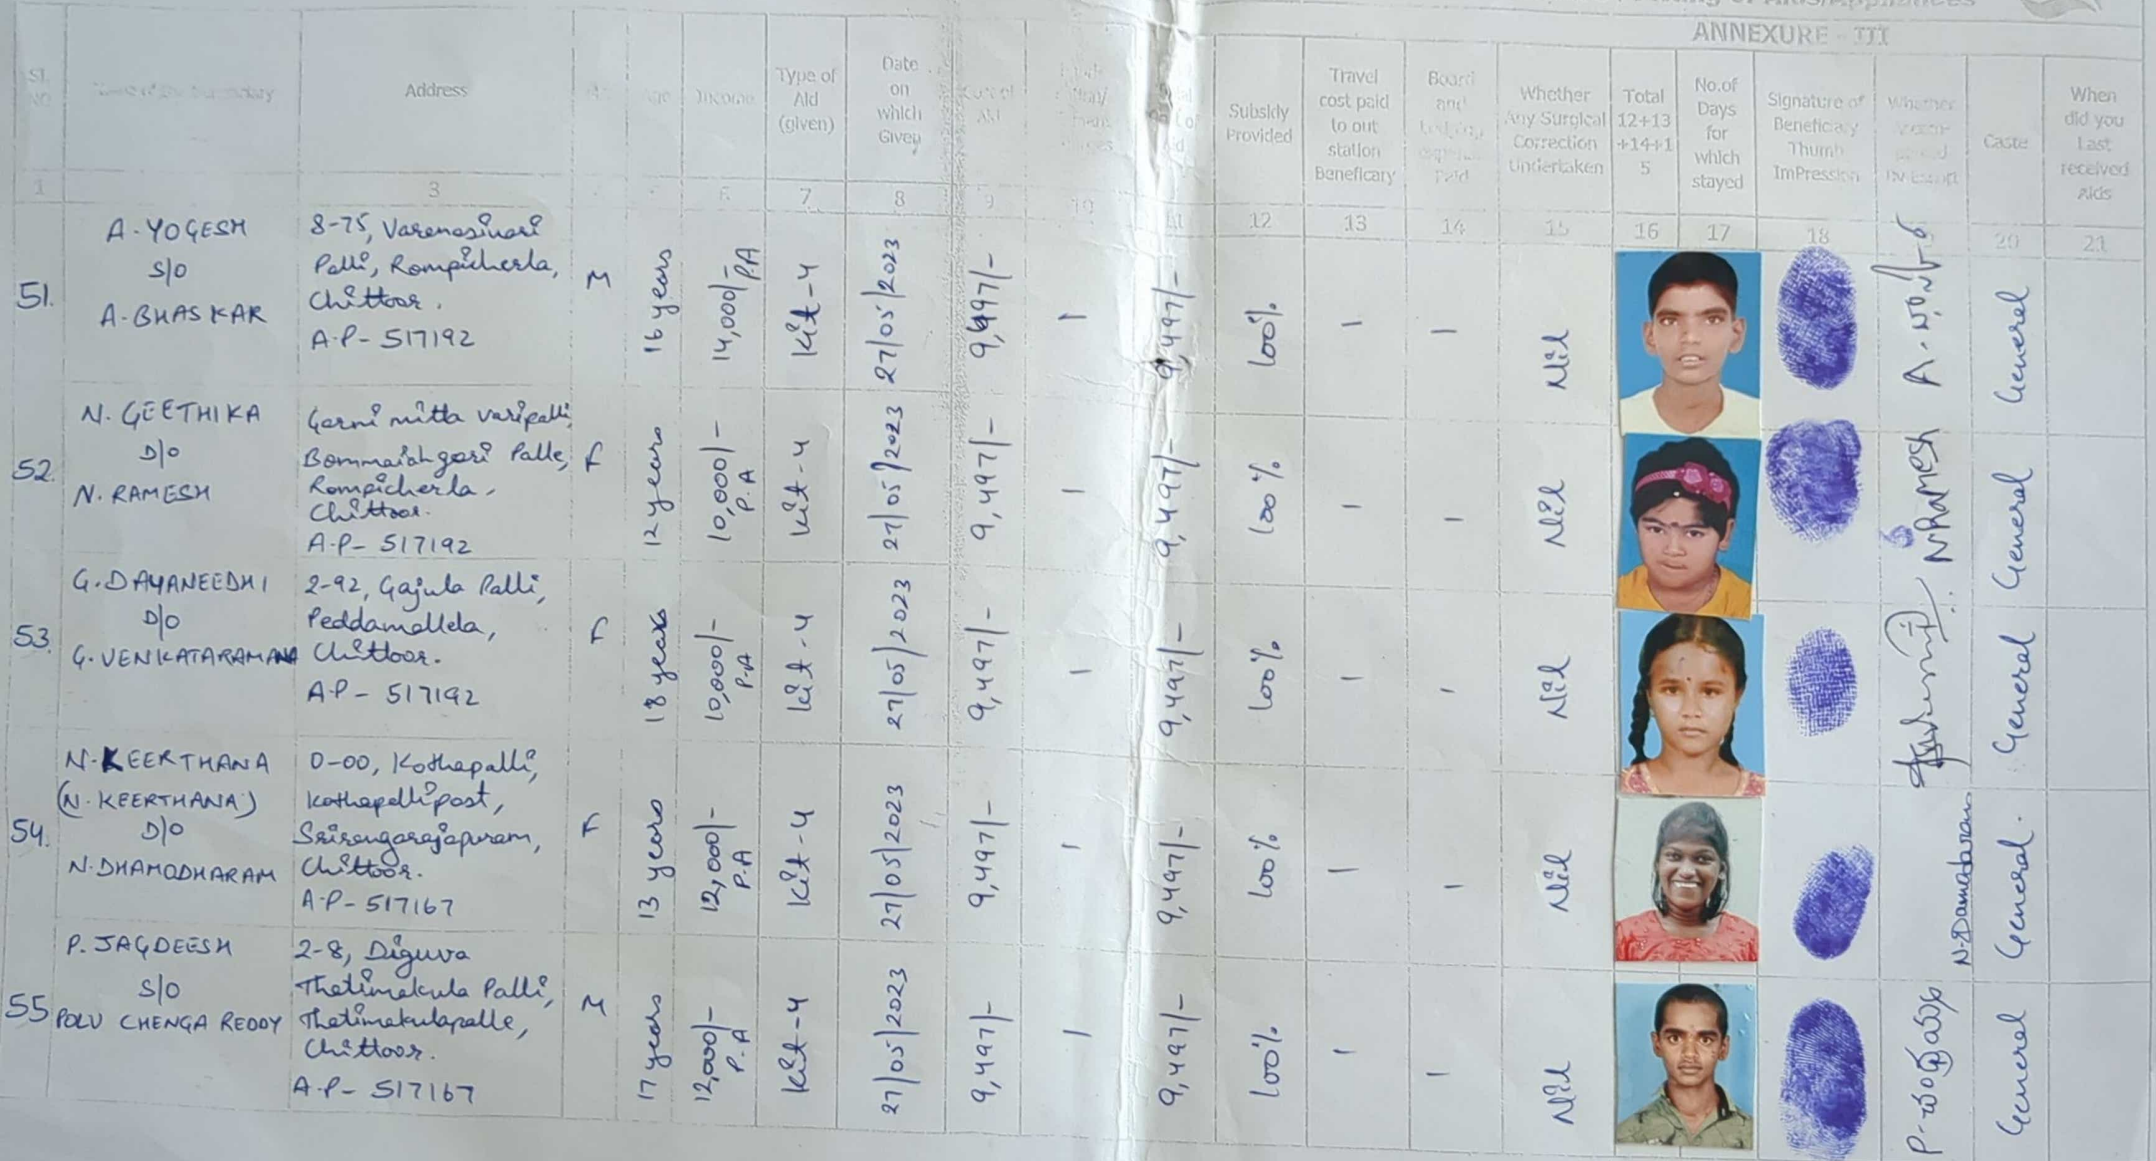 ANNEXURE - III
Address
Income
Type of
Aid
(given)
Date
on
which
Given
Subsidy
Provided
Travel
cost paid
to out
station
Beneficary
Board
and
Paid
Whether
Any Surgical
Correction
Undertaken
Total
12+13
+14+1
5
No.of
Days
for
which
stayed
Signature of
Beneficiary
Thumb
ImPression
Whether
Caste
When
did you
Last
received
Aids
1 3 7 8 9 10 11 12 13 14 15 16 17 18 20 21
51.
A. YOGESH
S/O
A. BHASKAR
8-75, Varenasivari
Palli, Rompicherla,
Chittoor.
A.P - 517192
M
16 years
14,000/- P.A
Kit-4
27/05/2023
9,497/-
9,497/-
100%
Nil
General
52.
N. GEETHIKA
D/O
N. RAMESH
Garmi mitta varipalli,
Bommaiahgari Palle,
Rompicherla,
Chittoor.
A.P - 517192
F
12 years
10,000/-
P.A
Kit-4
27/05/2023
9,497/-
9,497/-
100%
Nil
N RAMESH
General
53.
G. DAYANEEDHI
D/O
G. VENKATARAMANA
2-92, Gajula Palli,
Peddamallela,
Chittoor.
A.P - 517192
F
18 years
10,000/-
P.A
Kit-4
27/05/2023
9,497/-
9,497/-
100%
Nil
General
54.
N. KEERTHANA
(N. KEERTHANA)
D/O
N. DHAMODHARAM
0-00, Kothapalli,
Kothapalli post,
Srirangarajapuram,
Chittoor.
A.P - 517167
F
13 years
12,000/-
P.A
Kit-4
27/05/2023
9,497/-
9,497/-
100%
Nil
N. Damodaram
General.
55
P. JAGDEESH
S/O
POLU CHENGA REDDY
2-8, Diguva
Thatimakula Palli,
Thatimakulapalle,
Chittoor.
A.P - 517167
M
17 years
12,000/-
P.A
Kit-4
27/05/2023
9,497/-
9,497/-
100%
Nil
General